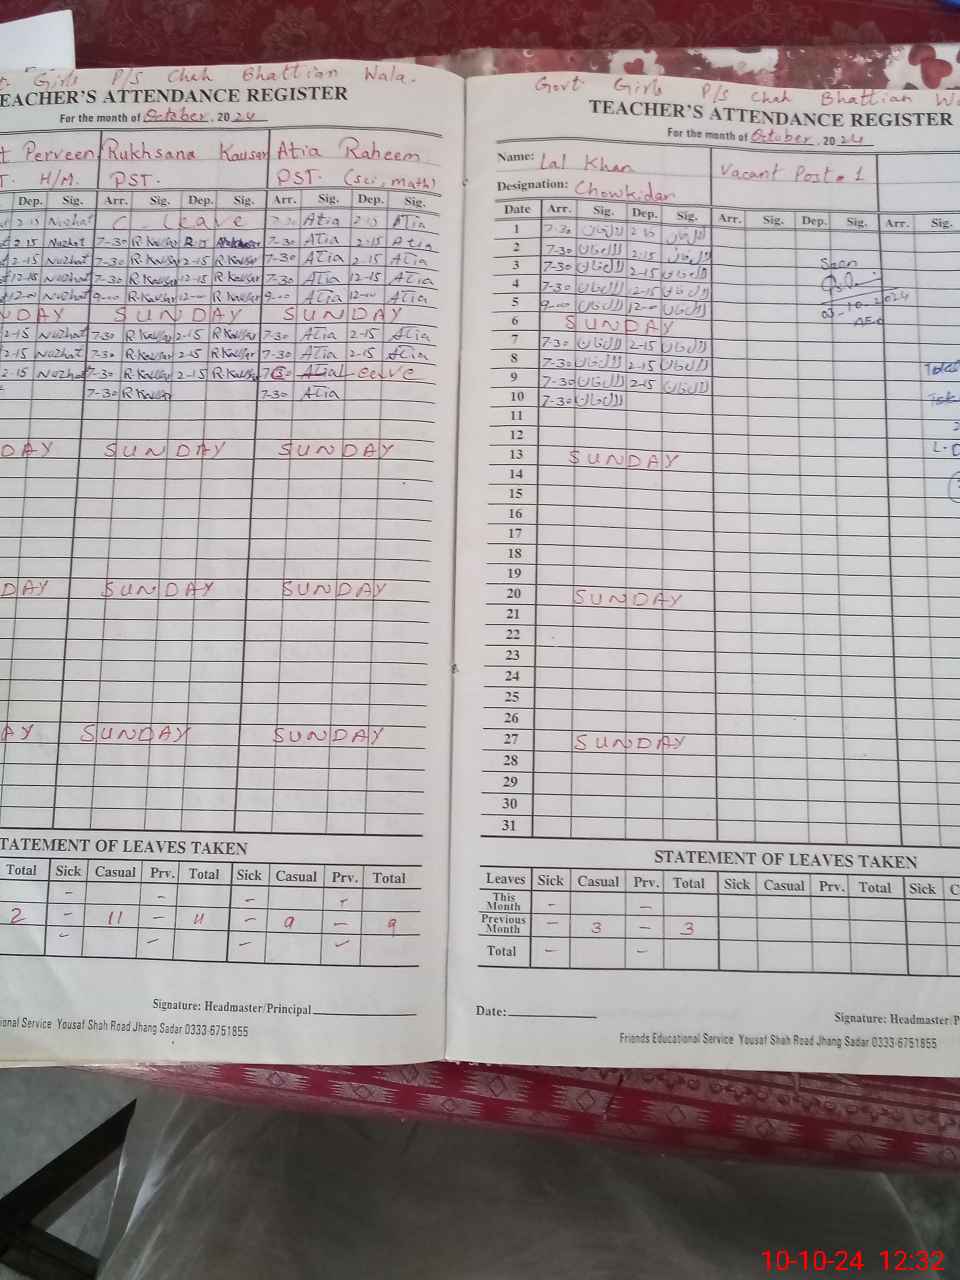 Girls P/S Chah Bhattian Wala.
EACHER'S ATTENDANCE REGISTER
For the month of October, 2024
Perveen Rukhsana Kausar Atia Raheem
H/M. PST. PST (sci, math)
Dep. Sig. Arr. Sig. Dep. Sig. Arr. Sig. Dep. Sig.
2-15 Nuzhat C. Leave 7-30 Atia 2-15 Atia
2-15 Nuzhat 7-30 R Kausar 2-15 7-30 Atia 2-15 Atia
2-15 Nuzhat 7-30 R Kausar 2-15 R Kausar 7-30 Atia 2-15 Atia
12-15 Nuzhat 7-30 R Kausar 12-15 R Kausar 7-30 Atia 12-15 Atia
12-00 Nuzhat 9-00 R Kausar 12-00 R Kausar 9-00 Atia 12-00 Atia
DAY SUNDAY SUNDAY
2-15 Nuzhat 7-30 R Kausar 2-15 R Kausar 7-30 Atia 2-15 Atia
2-15 Nuzhat 7-30 R Kausar 2-15 R Kausar 7-30 Atia 2-15 Atia
2-15 Nuzhat 7-30 R Kausar 2-15 R Kausar Leave
7-30 R Kausar 7-30 Atia
DAY SUNDAY SUNDAY
DAY SUNDAY SUNDAY
AY SUNDAY SUNDAY
TATEMENT OF LEAVES TAKEN
Total Sick Casual Prv. Total Sick Casual Prv. Total
- - - -
2 - 11 - 11 - 9 - 9
- - - -
Signature: Headmaster/Principal
ional Service Yousaf Shah Road Jhang Sadar 0333-6751855
Govt Girls P/S Chah Bhattian
TEACHER'S ATTENDANCE REGISTER
For the month of October, 2024
Name: Lal Khan Vacant Post = 1
Designation: Chowkidar
Date Arr. Sig. Dep. Sig. Arr. Sig. Dep. Sig. Arr. Sig.
1 7-30 لال خان 2-15 لال خان
2 7-30 لال خان 2-15 لال خان
3 7-30 لال خان 2-15 لال خان Seen
4 7-30 لال خان 12-15 لال خان
5 9-00 لال خان 12-00 لال خان 03-10-2024
6 SUNDAY AEO
7 7-30 لال خان 2-15 لال خان
8 7-30 لال خان 2-15 لال خان
9 7-30 لال خان 2-15 لال خان
10 7-30 لال خان
11
12
13 SUNDAY
14
15
16
17
18
19
20 SUNDAY
21
22
23
24
25
26
27 SUNDAY
28
29
30
31
STATEMENT OF LEAVES TAKEN
Leaves Sick Casual Prv. Total Sick Casual Prv. Total Sick
This Month - -
Previous Month - 3 - 3
Total - -
Date:
Signature: Headmaster/P
Friends Educational Service Yousaf Shah Road Jhang Sadar 0333-6751855
10-10-24 12:32